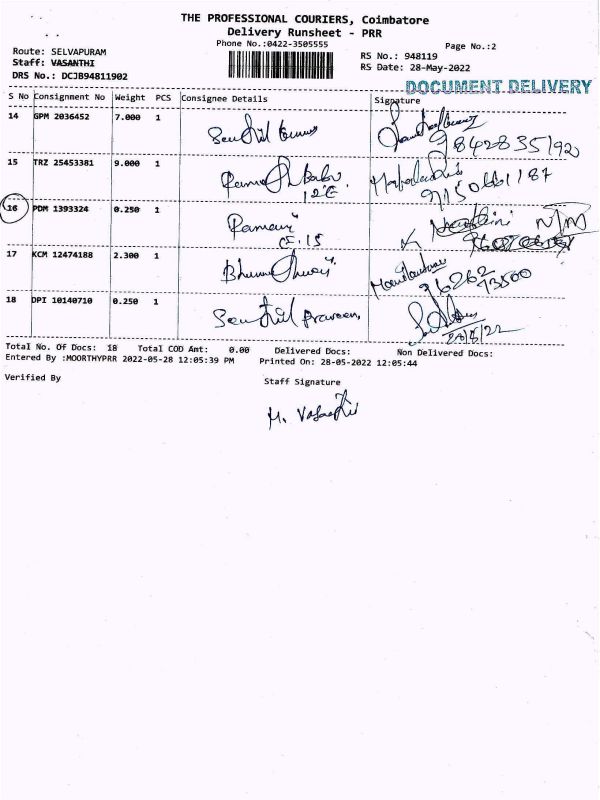 THE PROFESSIONAL COURIERS, Coimbatore
Delivery Runsheet - PRR
Phone No.:0422-3505555
Page No.:2
Route: SELVAPURAM
Staff: VASANTHI
DRS No.: DCJB94811902
RS No.: 948119
RS Date: 28-May-2022
DOCUMENT DELIVERY
S No Consignment No Weight PCS Consignee Details Signature
14 GPM 2036452 7.000 1 Senthil Kumar
98428 35192
15 TRZ 25453381 9.000 1 Babu
12E.
9150661187
16 PDM 1393324 0.250 1 Ramani
CF.15
17 KCM 12474188 2.300 1
96262
73500
18 DPI 10140710 0.250 1 Senthil Praveen
28/5/22
Total No. Of Docs: 18 Total COD Amt: 0.00 Delivered Docs: Non Delivered Docs:
Entered By :MOORTHYPRR 2022-05-28 12:05:39 PM Printed On: 28-05-2022 12:05:44
Verified By
Staff Signature
M. Vasanthi